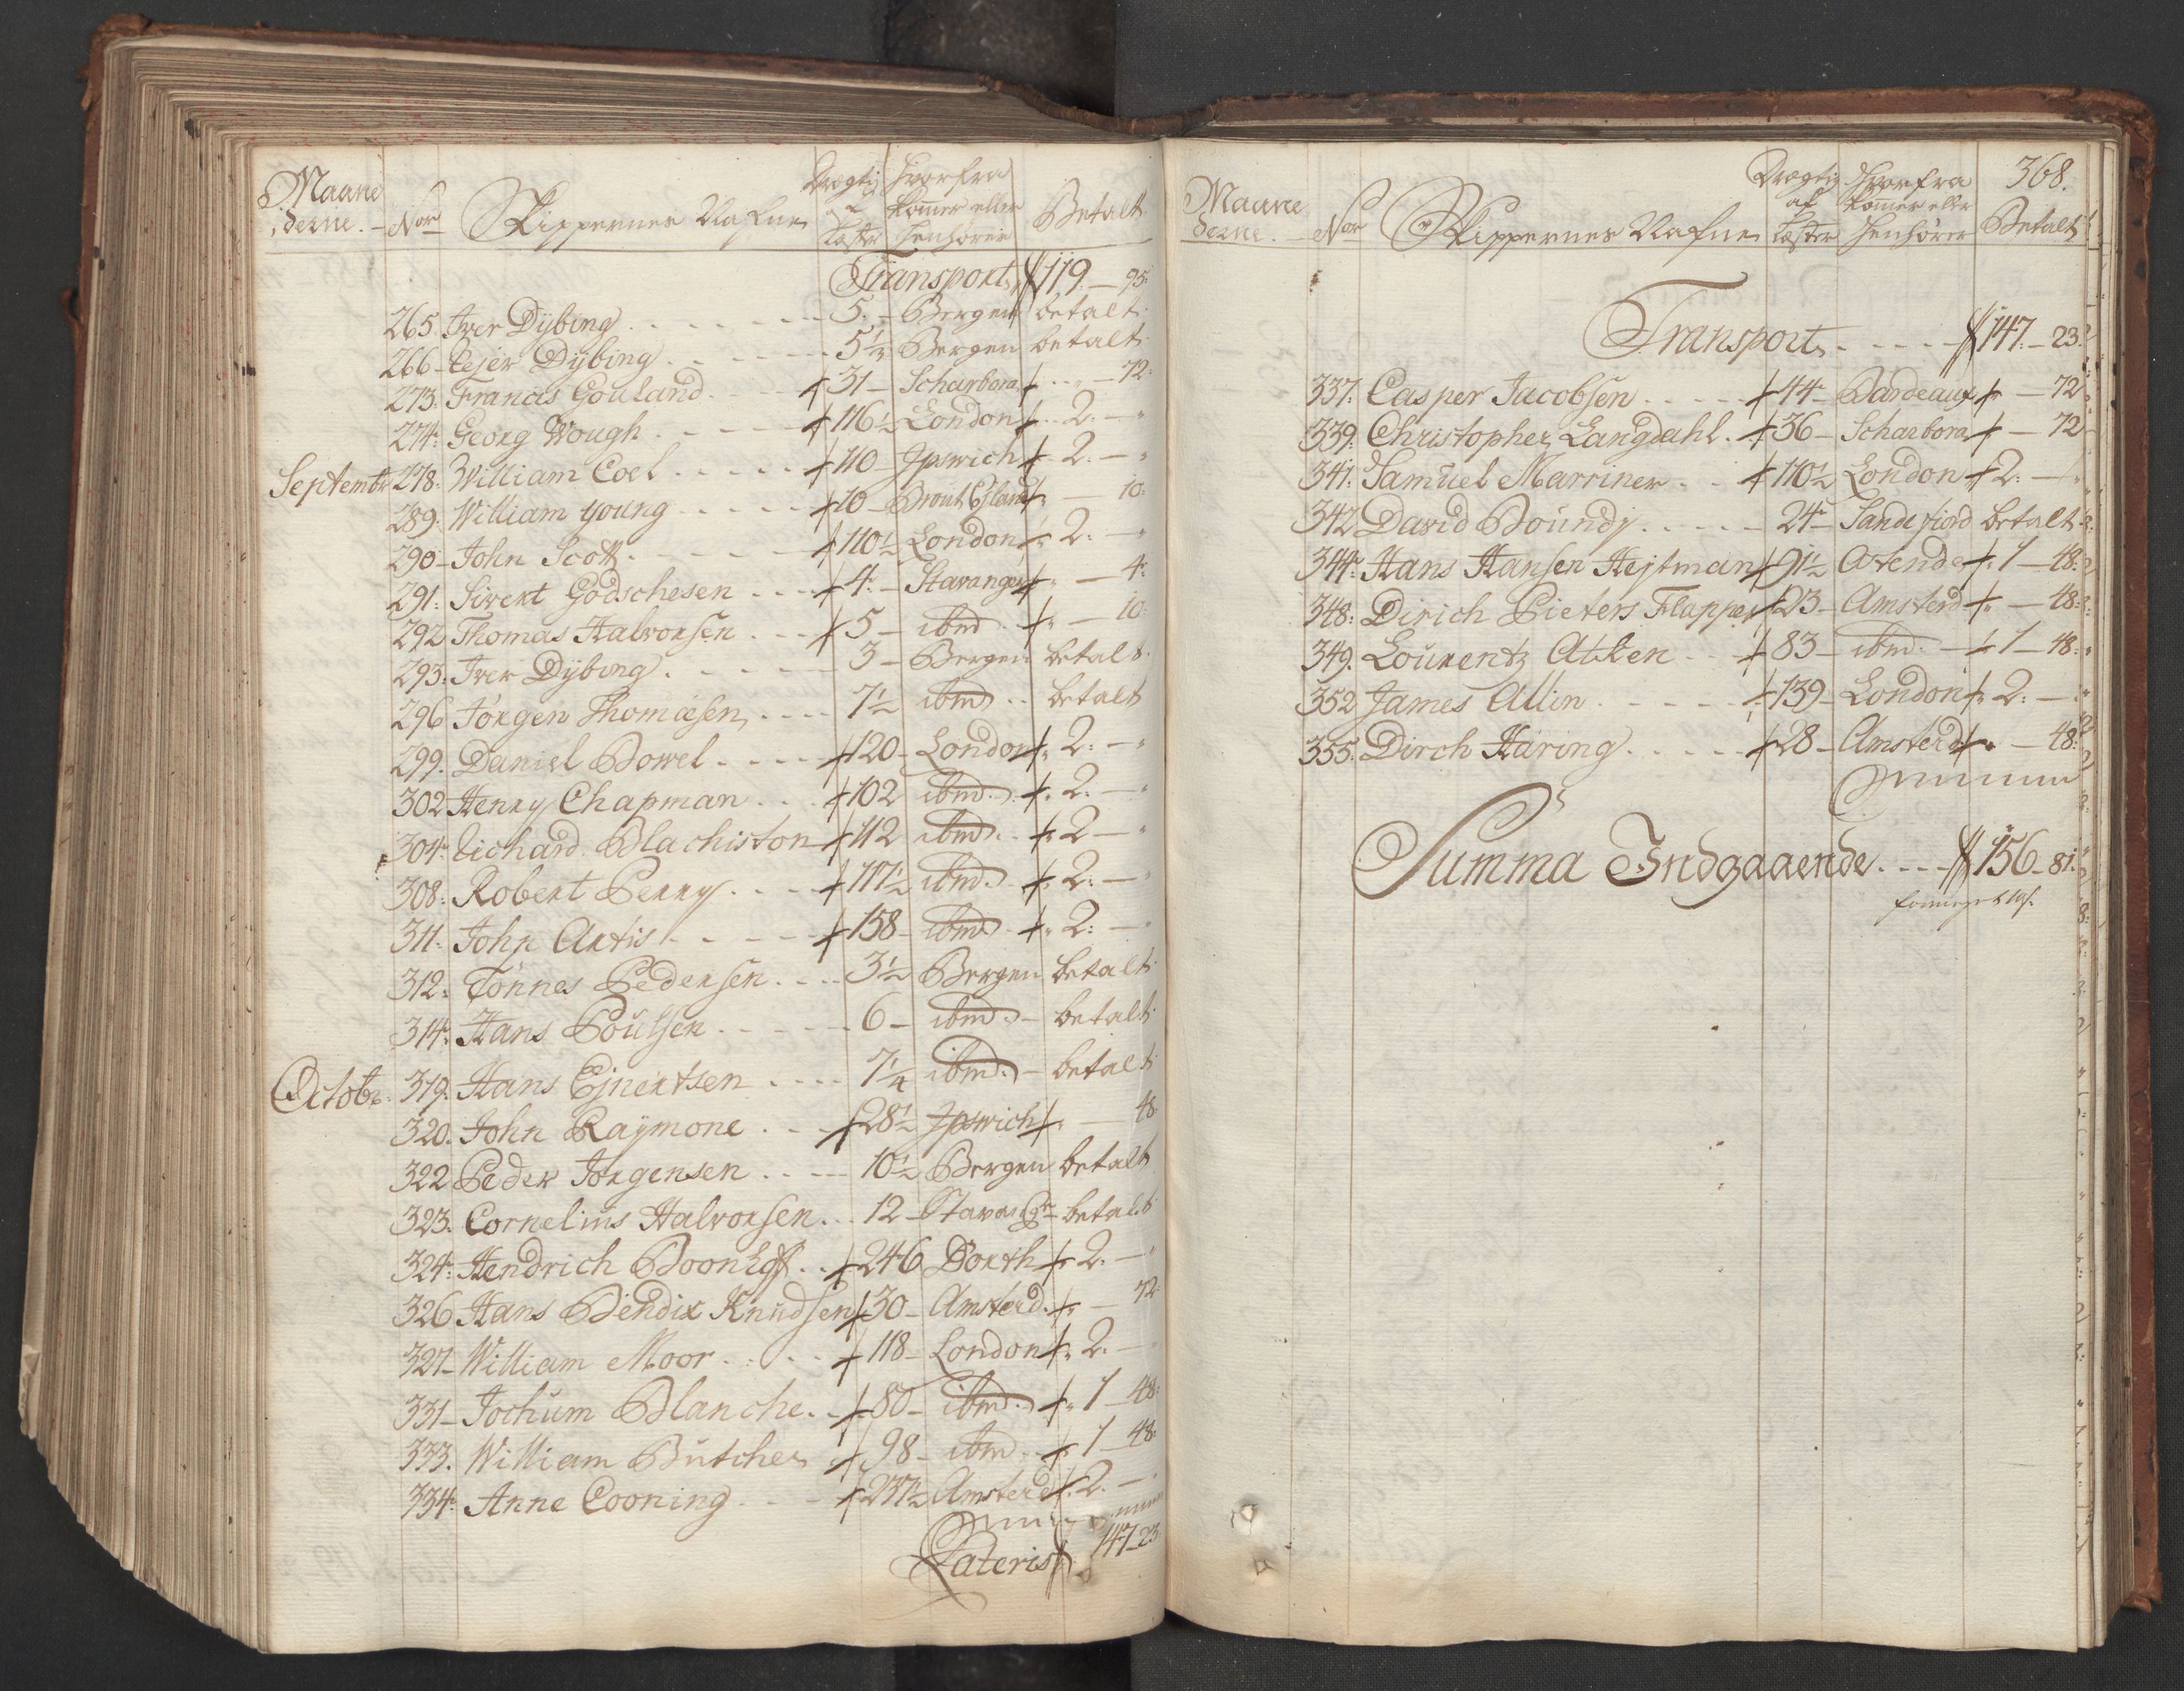 Maane Drægtig Hvorfra
derne. Nor Skippernes Nafne af Læster kommer eller henhører Betalt
Transport 119 — 95
265. Iver Dÿbing 5. — Bergen betalt
266 — Pejer Dÿbing 5 1/2 Bergen betalt
273. Francis Gouland 31 — Scharbora — 72
274. Georg Wough 116 1/2 London 2. —
Septembr 278. William Coel 110 — Ipswich 2. —
289. William young 10 — 10
290 — John Scott 110 1/2 London 2. —
291. Sivert Godschesen 4. — Stavanger — 4
292 Thomas Halvorsen 5 — ibm — 10
293. Iver Dÿbing 3 — Bergen betalt
296 Jörgen Thomæsen 7 1/2 ibm betalt
299. Daniel Bowel 120 — London 2. —
302 Henry Chapman 102 ibm 2. —
304. Richard Blachiston 112 ibm 2 —
308. Robert Perry 117 1/2 ibm 2. —
311. John Artis 158 — ibm 2. —
312. Tönnes Pedersen 3 1/2 Bergen betalt
314. Hans Poulsen 6 — ibm — betalt
Octobr. 319. Hans Ejnertsen 7 1/4 ibm — betalt
320. John Raÿmone 28 1/2 Ipswich — 48
322 Peder Jörgensen 10 1/2 Bergen betalt
323. Cornelius Halvorsen 12 — Stavanger betalt
324. Hendrich Boonhoff 246 Dorth 2. —
326 Hans Bendix Knudsen 30 — Amsterd. — 72
327 — William Moor 118 — London 2. —
331 — Jochum Blanche 80 — ibm 1 — 48
333. William Butcher 98 — ibm 1 — 48
334. Anne Cooning 237 1/2 Amsterd 2. —
Lateris 147 — 23
368.
Maane Drægtig Hvorfra
derne. Nor Skippernes Nafne af Læster kommer eller henhører Betalt
Transport 147. — 23
337. Casper Jacobsen 44 — Bardeaux — 72
339. Christopher Langdahl 36 — Scharbora — 72
341. Samuel Marriner 110 1/2 London 2. —
342 David Boundÿ 24 — Sandefiord betalt
344. Hans Hansen Hejtman 91 1/2 Ostende 1 — 48
348. Dirich Pieters Flapper 23 — Amsterd — 48
349. Lourentz Atken 83 — ibm. — 1 — 48
352 James Allin 139 — London 2. —
355. Dirch Häring 28 — Amsterd — 48
Summa Indgaaende 156 — 81